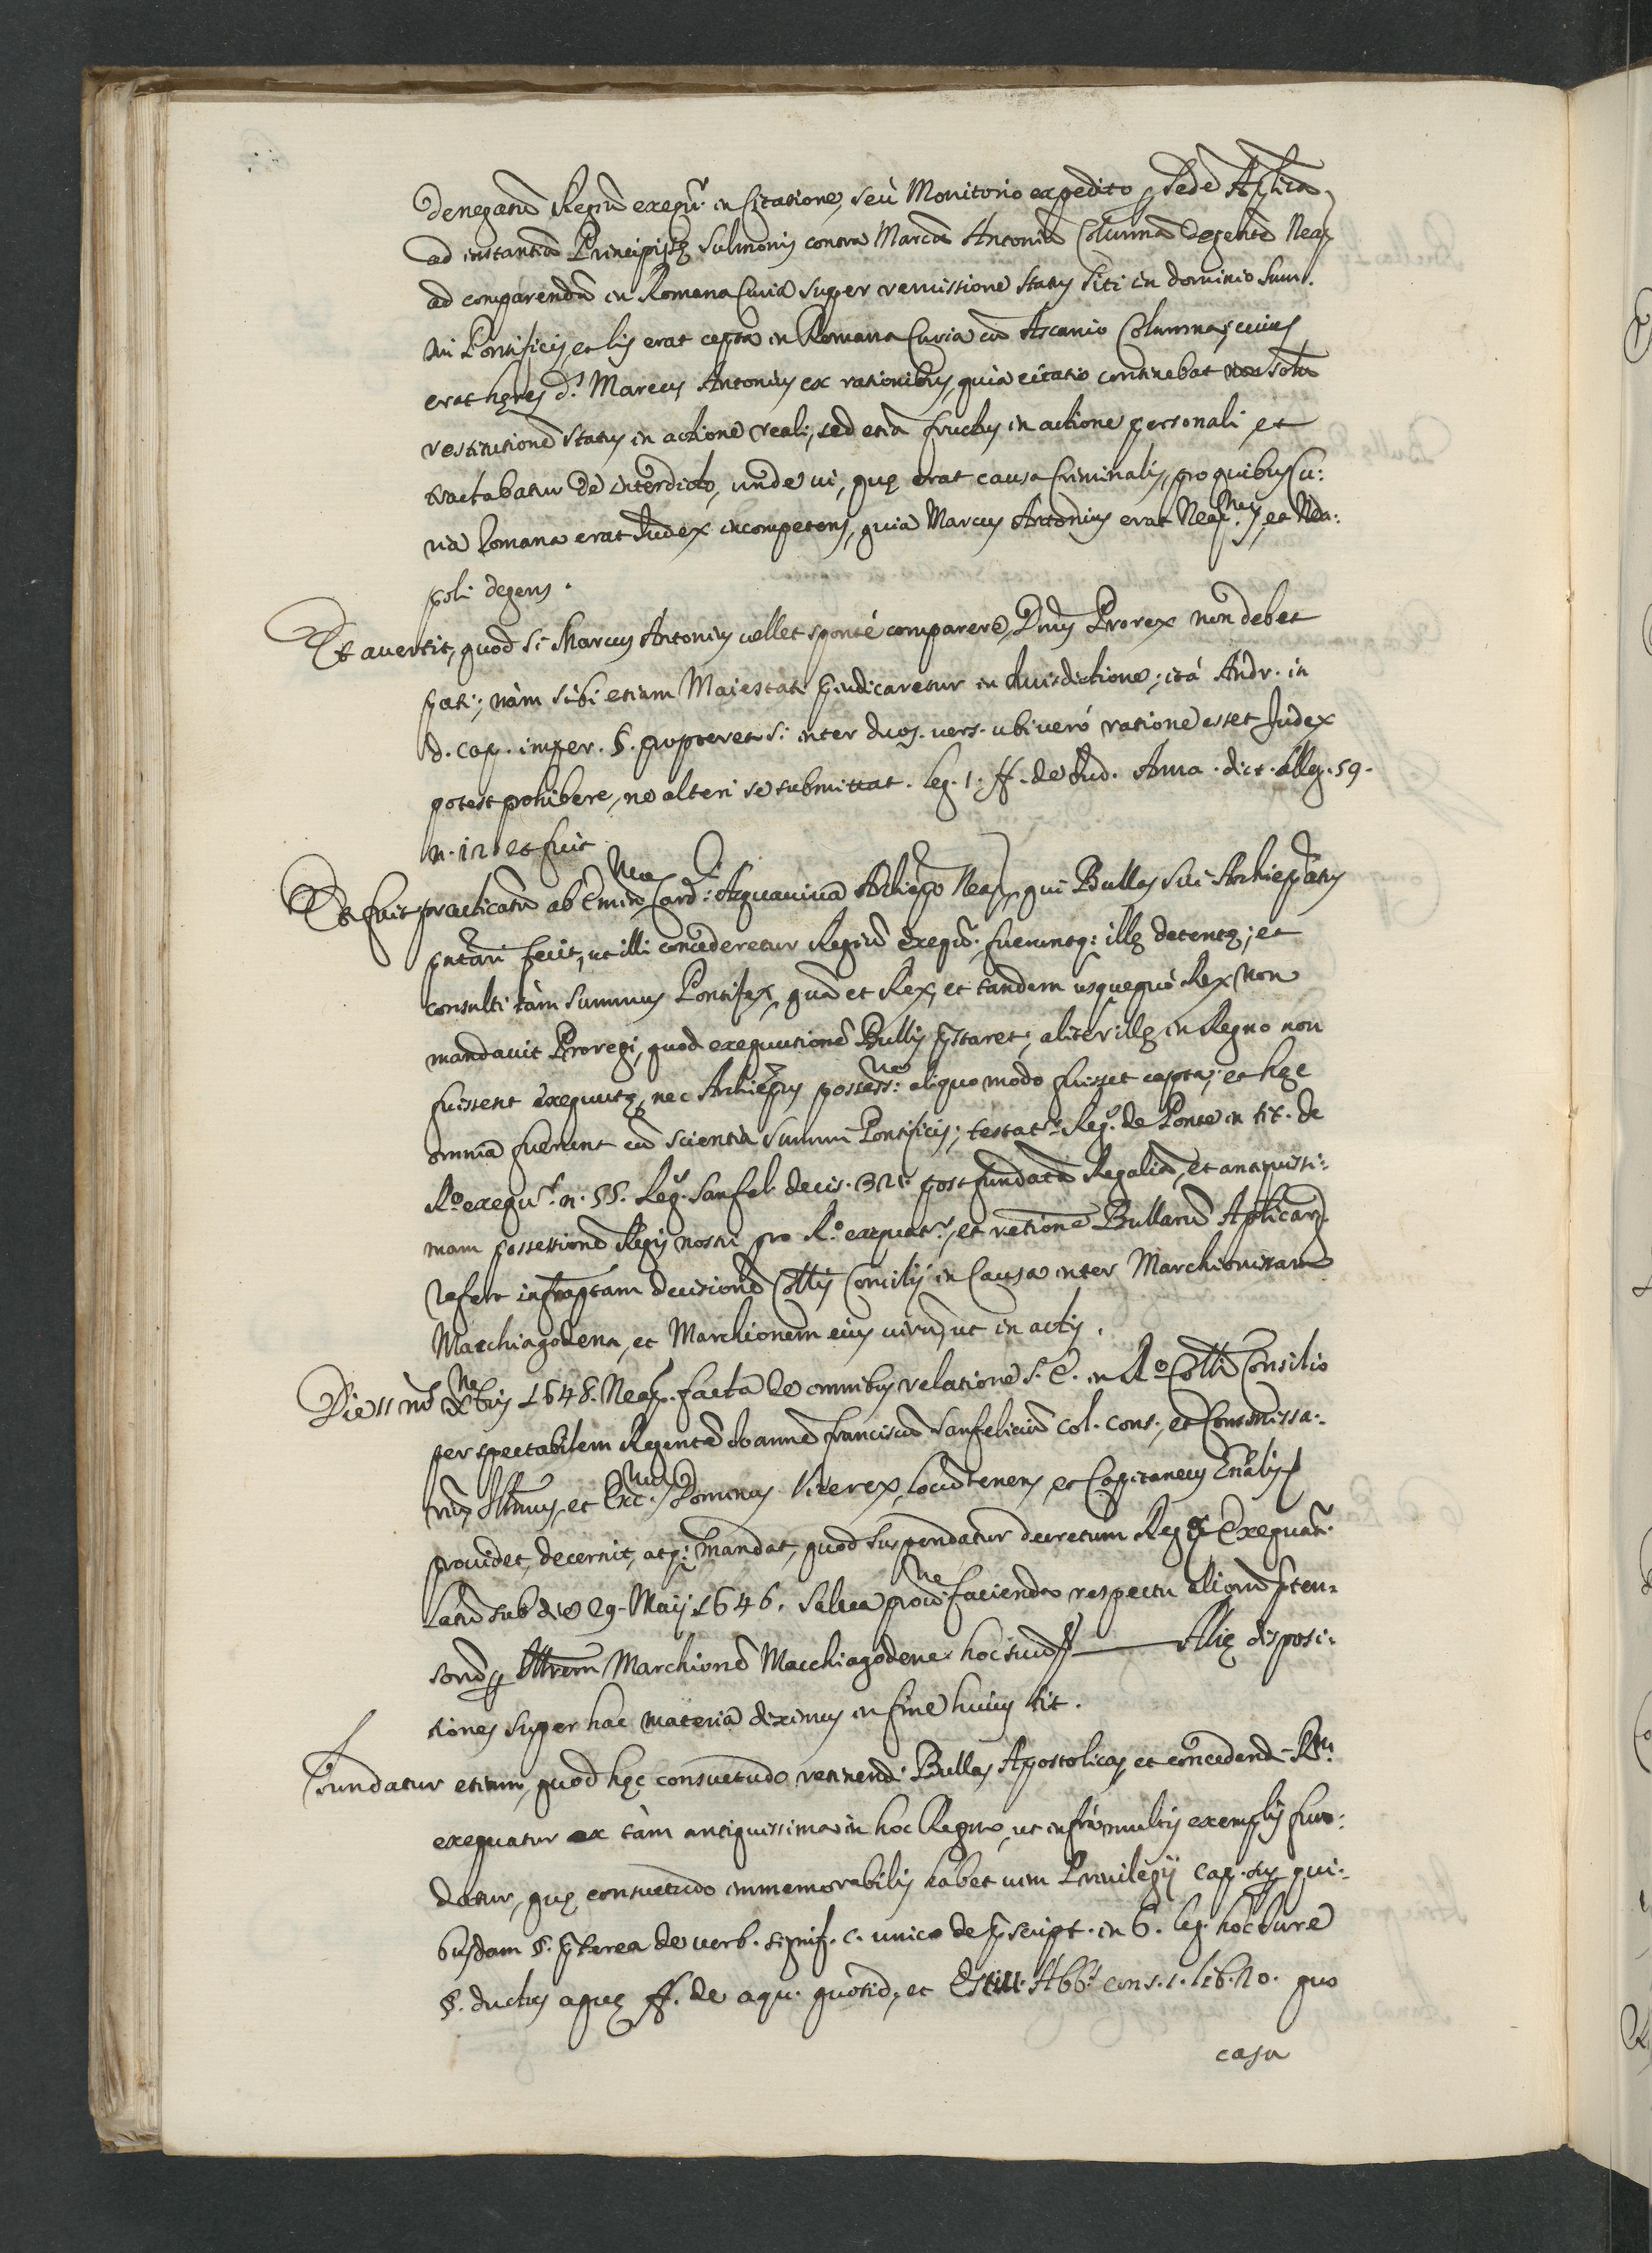 denegatũ Regiũ exequr. in Citatione, seù Monitorio expedito p Sede Aplica
ad instantiã Principissę Sulmonis contra Marcũ Antoniũ Columnã degentẽ Neap
ad comparendũ in Romana Curia super remissione status siti in dominio Sum.
mi Pontificis, et lis erat cepta in Romana Curia cũ Ascanio Columna, cuius
erat hęres ds. Marcus Antonius ex rationibus, quia citatio continebat non solũ
restitutionẽ status in actione reali, sed etiã fructus in actione personali, et
tractabatur de interdicto, unde ui, quę erat causa Criminalis, pro quibus Cu:
ria Romana erat Iudex incompetens, quia Marcus Antonius erat Neap.nus, et Nea:
poli degens.
Et auertit, quod si Marcus Antonius uellet sponté comparere, Dnus Prorex non debet
pati; nàm sibi etiam Maiestati p̃iudicaretur in Iurisdictione; ità Andr. in
d. cap. imper. §. propterea si inter duos. uers. ubi ueró ratione esset Iudex
potest prohibere, ne alteri se submittat. leg. 1. ff. de Iud. Anna. dict. alleg. 59.
n. 120 et fuit.
Et fuit practicatũ ab Emin.mo Card: Aquauiua Archiepo Neap, qui Bullas sui Archiepatus
pntari fecit, ut illi concederetur Regiũ exequr. fueruntq: illę detentę; et
consulti tàm Summus Pontifex, quã et Rex, et tandem usquequó Rex non
mandauit Proregi, quod exequutionẽ Bullis p̃staret; aliter illę in Regno non
fuissent exequutę, nec Archiepus possess.ne aliquo modo fuisset cepta; et hęc
omnia fuerunt cũ scientia Summi Pontificis; testatr. Reg. de Ponte in tit. de
Ro. exequr. n. 55. Reg. Sanfel. decis. 321. post fundatã Regaliã, et antiquissi:
mam possessionẽ Regis nostri pro Ro. exequatr., et retentionẽ Bullarũ Aplicarũ
refert infrapta̅m decisionẽ Collis Consilij in Causa inter Marchionissam
Macchiagodena, et Marchionem eius uirũ, ut in actis.
Die 11 ms. Xbris 1648. Neap. facta de omnibus relatione S. E. in Ro. Colli Consilio
per spectabilem Regentẽ Ioannẽ Franciscũ Sanfeliciũ Col. Cons., et Commissa:
riũ, Illmus, et Exc.mus Dominus Vicerex, Locũtenens, et Capitaneus Gñalis
prouidet, decernit, atq: mandat, quod suspendatur decretum Reg. Exequatr.
latũ sub die 29. Maij 1646. salua prouis.ne facienda respectu aliorũ p̃ten-
sorũ p Illrem Marchionẽ Macchiagodena hoc suũ — Alię disposi:
tiones super hac materia diximus in fine huius tit.
Fundatur etiam, quod hęc consuetudo retinendi Bullas Apostolicas, et concedendi R.m
exequatur ex tàm antiquissima in hoc Regno, ut infrà multis exemplis fun:
datur, quę consuetudo immemorabilis habet uim Priuilegij cap. sup. qui:
busdam §. p̃terea de uerb. signif. c. unico de p̃script. in 6. leg. hoc Iure
§. ductus aquę ff. de aqu. quotid., et Abb. cons. 1. lib. 20. quo
casu